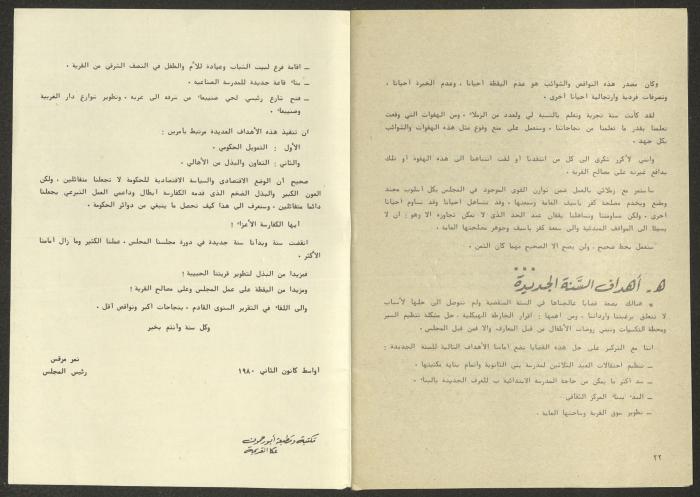 وكان مصدر هذه النواقص والشوائب هو عدم اليقظة أحيانا ، وعدم الخبرة أحيانا ،
وتصرفات فردية وارتجالية أحيانا أخرى .
لقد كانت سنة تجربة وتعلم بالنسبة لي ولعدد من الزملاء . ومن الهفوات التي وقعت
تعلمنا بقدر ما تعلمنا من نجاحاتنا ، وسنعمل على منع وقوع مثل هذه الهفوات والشوائب
بكل جهد .
وانني لأكرر شكري الى كل من انتقدنا أو لفت انتباهنا الى هذه الهفوة أو تلك
بدافع غيرته على مصالح القرية .
سأستمر مع زملائي بالعمل ضمن توازن القوى الموجود في المجلس بكل أسلوب مجند
وطبع ويخدم مصلحة كفر ياسيف العامة وسمعتها ، وقد نتساهل أحيانا وقد نساوم أحيانا
أخرى ، ولكن مساومتنا وتساهلنا يقفان عند الحد الذي لا يمكن تجاوزه الا وهو : ان لا
يسيئا الى المواقف المبدئية والى سمعة كفر ياسيف وجوهر مصلحتها العامة .
سنعمل بخط صحيح ، ولن يصح الا الصحيح مهما كان الثمن .
٥ـ أهداف السنة الجديدة
• هنالك بضعة قضايا عالجناها في السنة المنقضية ولم نتوصل الى حلها لأسباب
لا تتعلق برغبتنا وارادتنا ، ومن أهمها : اقرار الخارطة الهيكلية ، حل مشكلة تنظيم السير
ومحطة التكسيات وتبني روضات الأطفال من قبل المعارف والا فمن قبل المجلس .
اننا مع التركيز على حل هذه القضايا نضع أمامنا الأهداف التالية للسنة الجديدة :
ــ تنظيم احتفالات العيد الثلاثين لمدرسة يني الثانوية واتمام بناية مكتبتها .
ــ سد أكثر ما يمكن من حاجة المدرسة الابتدائية ب للغرف الجديدة بالبناء .
ــ البدء ببناء المركز الثقافي .
ــ تطوير سوق القرية وساحتها العامة .
٢٢
ــ اقامة فرع لبيت الشباب وعيادة للأم والطفل في النصف الشرقي من القرية .
ــ بناء قاعة جديدة للمدرسة الصناعية .
ــ فتح شارع رئيسي لحي صنيبعاء من شرقه الى غربه ، وتطوير شوارع دار الغربية
وصنيبعاء .
ان تنفيذ هذه الأهداف العديدة مرتبط بأمرين :
الأول : التمويل الحكومي .
والثاني : التعاون والبذل من الأهالي .
صحيح أن الوضع الاقتصادي والسياسة الاقتصادية للحكومة لا تجعلنا متفائلين ، ولكن
العون الكبير والبذل الضخم الذي قدمه الكفارسة أبطال وداعمي العمل التبرعي يجعلنا
دائما متفائلين ، وسنعرف الى هذا كيف نحصل ما ينبغي من دوائر الحكومة .
أيها الكفارسة الأعزاء !
انقضت سنة وبدأنا سنة جديدة في دورة مجلسنا المحلي ، عملنا الكثير وما زال أمامنا
الأكثر .
فمزيدا من البذل لتطوير قريتنا الحبيبة !
ومزيدا من اليقظة على عمل المجلس وعلى مصالح القرية !
والى اللقاء في التقرير السنوي القادم ، بنجاحات أكبر ونواقص أقل .
وكل سنة وأنتم بخير
نمر مرقس
أواسط كانون الثاني ١٩٨٠ رئيس المجلس
مكتبة ومطبعة أبو رحمون
عكا القديمة